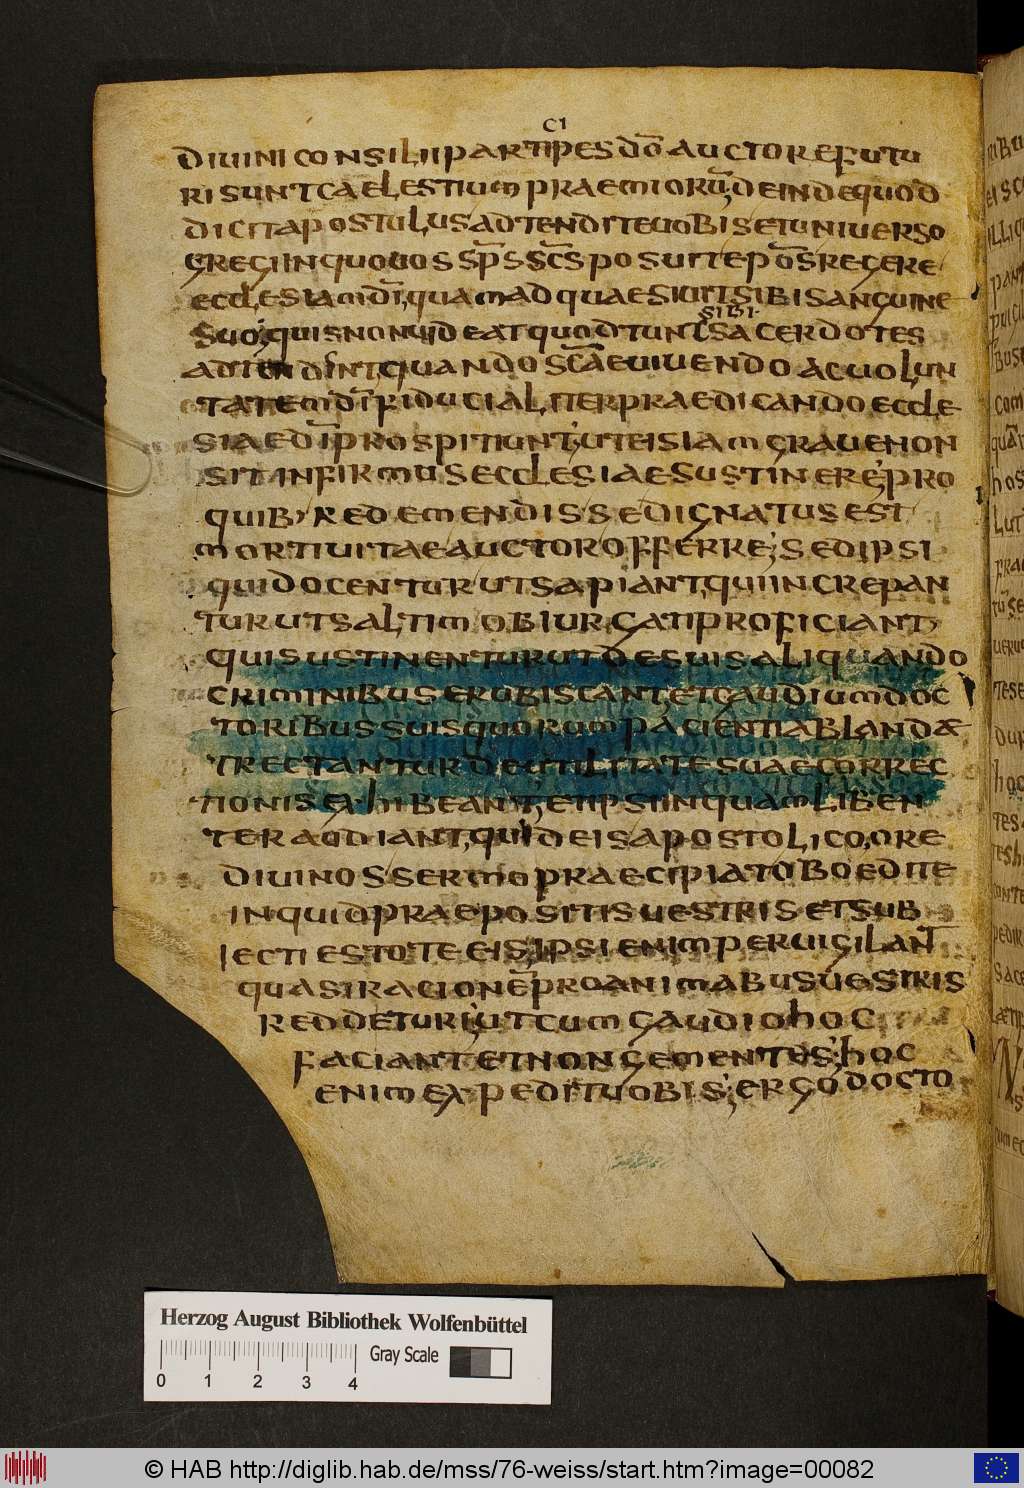 CI
DIUINI CONSILII PARTIPES DO AUCTORE FUTU
RI SUNT CAELESTIUM PRAEMIORU; DEINDE QUOD
DICIT APOSTULUS ADTENDITE UOBIS ET UNIUERSO
GREGI IN QUO UOS SPS SCS POSUIT EPOS REGERE
ECCLESIAM DI, QUAM ADQUAESIUIT SIBI SANGUINE
SIBI
SUO, QUIS NON UIDEAT QUOD TUNC SACERDOTES
ADTENDINT, QUANDO SCAE UIUENDO AC UOLUN
TATEM DI FIDUCIALITER PRAEDICANDO ECCLE
SIAE DI PROSPITIUNT, UT EI SIAM GRAUE NON
SIT INFIRMUS ECCLESIAE SUSTINERE, PRO
QUIB REDEMENDIS SE DIGNATUS EST
MORTI UITAE AUCTOR OFFERRE; SED IPSI
QUI DOCENTUR UT SAPIANT, QUI INCREPAN
TUR UT SALTIM OBIURGATI PROFICIANT,
QUI SUSTINENTUR UT DE SUIS ALIQUANDO
CRIMINIBUS ERUBISCANT ET GAUDIUM DOC
TORIBUS SUIS QUORUM PACIENTIA BLANDAE
TRECTANTUR DE UTILITATE SUAE CORREC
TIONIS EXHIBEANT, ET IPSI INQUAM LIBEN
TER AUDIANT, QUID EIS APOSTOLICO ORE
DIUINOS SERMO PRAECIPIAT OBOEDITE
INQUID PRAEPOSITIS UESTRIS ET SUB
IECTI ESTOTE EIS IPSI ENIM PERUIGILANT
QUASI RACIONE PRO ANIMABUS UESTRIS
REDDETURI, UT CUM GAUDIO HOC
FACIANT ET NON GEMENTES; HOC
ENIM EXPEDIT UOBIS; ERGO DOCTO
Herzog August Bibliothek Wolfenbüttel
Gray Scale
0 1 2 3 4
© HAB http://diglib.hab.de/mss/76-weiss/start.htm?image=00082